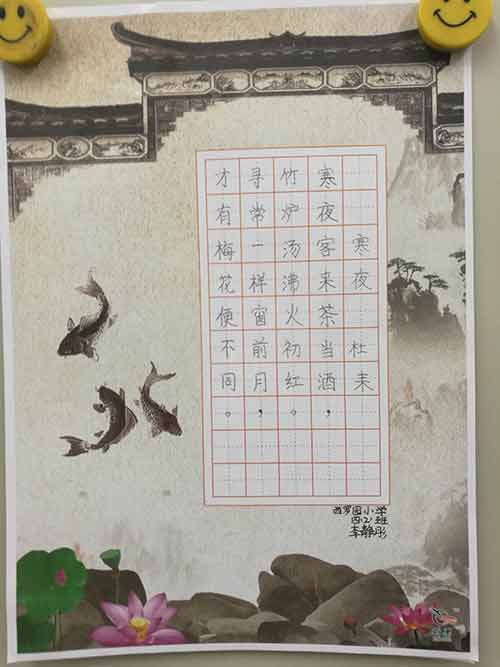 寒夜 杜耒
寒夜客来茶当酒，
竹炉汤沸火初红。
寻常一样窗前月，
才有梅花便不同。
西罗园小学
四(2)班
李静彤